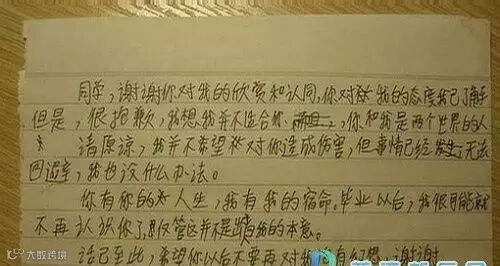 同学,谢谢你对我的欣赏和认同,你对我的态度我已了解
但是,很抱歉,我想我并不适合你,你和我是两个世界的人
请原谅,我并不希望对你造成伤害,但事情已经发生无法
回避,我也没什么办法。
你有你的人生,我有我的宿命。毕业以后,我很可能就
不再认识你了,尽管这并不是出自我的本意。
话已至此,希望你以后不要再对我抱有幻想,谢谢
大数跨境